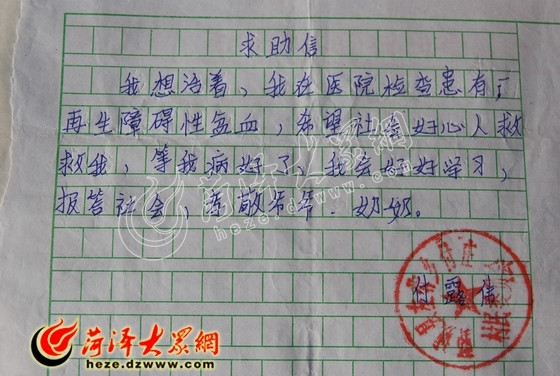 求助信
我想活着，我在医院检查患有了
再生障碍性盆血，希望社会好心人救
救我，等我病好了，我会好好学习，
报答社会，
奶奶。
付露
菏泽大眾網
heze.dzwww.com
菏泽大眾網
heze.dzwww.com